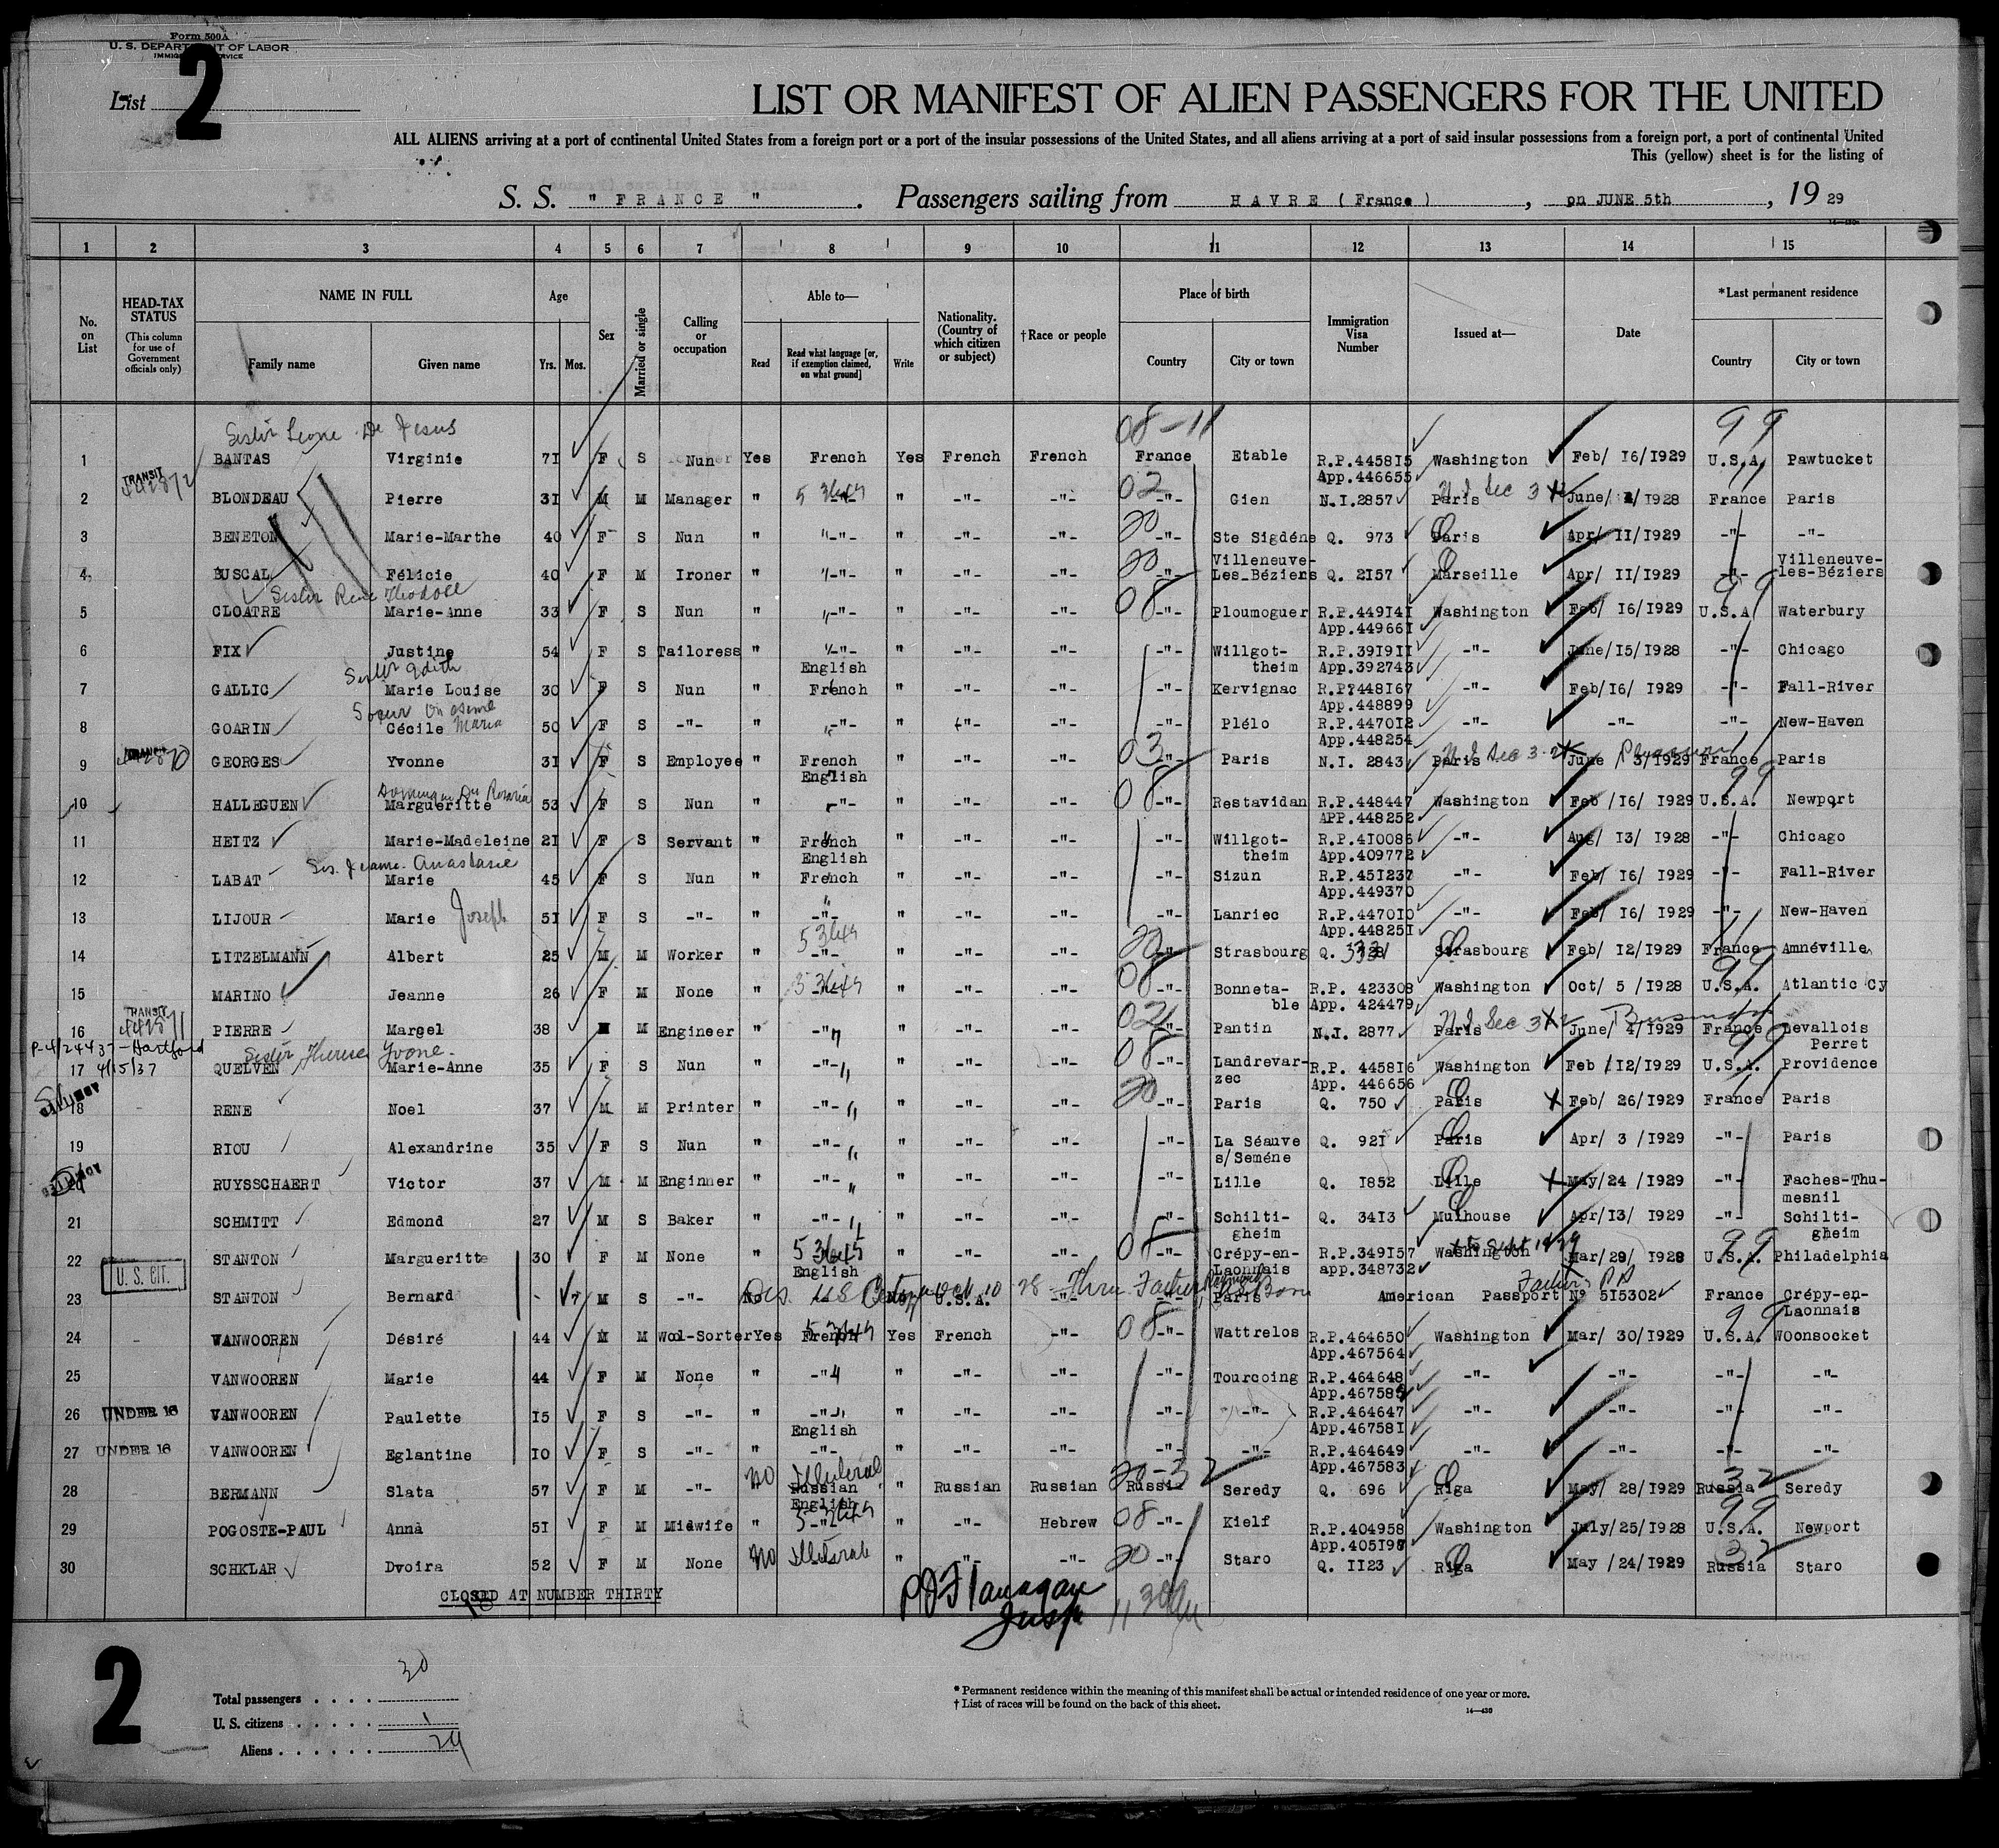 Form 500A
U. S. DEPARTMENT OF LABOR
IMMIGRATION SERVICE
List 2
LIST OR MANIFEST OF ALIEN PASSENGERS FOR THE UNITED
ALL ALIENS arriving at a port of continental United States from a foreign port or a port of the insular possessions of the United States, and all aliens arriving at a port of said insular possessions from a foreign port, a port of continental United
This (yellow) sheet is for the listing of
S. S. " FRANCE " . Passengers sailing from HAVRE (France) , on JUNE 5th , 19 29
1 2 3 4 5 6 7 8 9 10 11 12 13 14 15
No. on List
HEAD-TAX STATUS (This column for use of Government officials only)
NAME IN FULL Family name Given name
Age Yrs. Mos.
Sex
Married or single
Calling or occupation
Able to— Read Read what language [or, if exemption claimed, on what ground] Write
Nationality. (Country of which citizen or subject)
†Race or people
Place of birth Country City or town
Immigration Visa Number
Issued at—
Date
*Last permanent residence Country City or town
Sister Leonie De Jesus 08-11 99
1 BANTAS Virginie 71 F S Nun Yes French Yes French French France Etable R.P.445815 Washington Feb/ 16/1929 U.S.A. Pawtucket
App.446655
2 TRANSIT BLONDEAU Pierre 31 M M Manager " " -"- -"- 02 -"- Gien N.I.2857 Paris June/ 1928 France Paris
3 BENETON Marie-Marthe 40 F S Nun " -"- " -"- -"- 20 -"- Ste Sigdéne Q. 973 Paris Apr/ 11/1929 -"- -"-
4 BUSCAL Félicie 40 F M Ironer " -"- " -"- -"- 20 -"- Villeneuve-Les-Béziers Q. 2157 Marseille Apr/ 11/1929 -"- Villeneuve-les-Béziers
Sister Rene Theodore
5 CLOATRE Marie-Anne 33 F S Nun " -"- " -"- -"- 08 -"- Ploumoguer R.P.449141 Washington Feb/ 16/1929 U.S.A Waterbury
App.449661
6 FIX Justine 54 F S Tailoress " -"- English " -"- -"- -"- Willgottheim R.P.391911 -"- June/15/1928 -"- Chicago
App.392743
Sister Edith
7 GALLIC Marie Louise 30 F S Nun " French " -"- -"- -"- Kervignac R.P.448167 -"- Feb/16/ 1929 -"- Fall-River
App.448899
8 GOARIN Cécile Maria 50 F S -"- " -"- " -"- -"- -"- Plélo R.P.447012 -"- -"- -"- New-Haven
App.448254
9 TRANSIT GEORGES Yvonne 31 F S Employee " French English " -"- -"- 03 -"- Paris N.I. 2843 Paris June / 3/1929 France Paris
10 HALLEGUEN Margueritte 53 F S Nun " -"- " -"- -"- 08 -"- Restavidan R.P.448447 Washington Feb /16/ 1929 U.S.A. Newport
APP.448252
11 HEITZ Marie-Madeleine 21 F S Servant " French English " -"- -"- -"- Willgottheim R.P.410086 -"- Aug/ 13/ 1928 -"- Chicago
App.409772
Sis. Jeanne Anastasie
12 LABAT Marie 45 F S Nun " French " -"- -"- -"- Sizun R.P.451237 -"- Feb/ 16/ 1929 -"- Fall-River
App.449370
13 LIJOUR Marie Joseph 51 F S -"- " -"- " -"- -"- -"- Lanriec R.P.447010 -"- Feb/ 16/ 1929 -"- New-Haven
App.448251
14 LITZELMANN Albert 25 M M Worker " -"- " -"- -"- 20 Strasbourg Q. Strasbourg Feb/ 12/1929 France Amnéville
15 MARINO Jeanne 26 F M None " " -"- -"- 08 -"- Bonnetable R.P. 423308 Washington Oct/ 5 /1928 U.S.A. Atlantic Cy
App. 424479
16 TRANSIT PIERRE Margel 38 M M Engineer " -"- " -"- -"- 02 -"- Pantin N.I. 2877 Paris June/ 4/1929 France Levallois Perret
P-4/24437-Hartford
Sister Therese Yvone
17 4/15/37 QUELVEN Marie-Anne 35 F S Nun " -"- " -"- -"- 08 -"- Landrevarzec R.P. 445816 Washington Feb /12/1929 U.S.A. Providence
App. 446656
18 RENE Noel 37 M M Printer " -"- " -"- -"- 20 -"- Paris Q. 750 Paris Feb/ 26/1929 France Paris
19 RIOU Alexandrine 35 F S Nun " -"- " -"- -"- -"- La Séauve s/Seméne Q. 921 Paris Apr/ 3 /1929 -"- Paris
20 RUYSSCHAERT Victor 37 M M Enginner " -"- " -"- -"- -"- Lille Q. 1852 Lille May/24 /1929 -"- Faches-Thumesnil
21 SCHMITT Edmond 27 M S Baker " -"- " -"- -"- -"- Schiltigheim Q. 3413 Mulhouse Apr/13/ 1929 -"- Schiltigheim
22 STANTON Margueritte 30 F M None " English " -"- -"- 08 -"- Crépy-en-Laonnais R.P.349157 Washington Mar/28/ 1928 U.S.A. Philadelphia
U. S. CIT. app.348732
23 STANTON Bernard M S -"- U.S.A. -"- Paris American Passport N° 515302 France Crépy-en-Laonnais
24 VANWOOREN Désiré 44 M M Wool-Sorter Yes French Yes French -"- 08 -"- Wattrelos R.P.464650 Washington Mar/ 30/1929 U.S.A. Woonsocket
App.467564
25 VANWOOREN Marie 44 F M None " -"- " -"- -"- -"- Tourcoing R.P.464648 -"- -"- -"- -"-
26 UNDER 16 VANWOOREN Paulette 15 F S -"- " -"- English " -"- -"- -"- -"- R.P.464647 -"- -"- -"- -"-
App.467581
27 UNDER 16 VANWOOREN Eglantine 10 F S -"- " -"- " -"- -"- -"- -"- R.P.464649 -"- -"- -"- -"-
App.467583
28 BERMANN Slata 57 F M -"- no Russian English " Russian Russian Russia Seredy Q. 696 Riga May/ 28/1929 Russia Seredy
29 POGOSTE-PAUL Anna 51 F M Midwife " -"- " -"- Hebrew 08 -"- Kielf R.P.404958 Washington July/25/1928 U.S.A. Newport
30 SCHKLAR Dvoira 52 F M None no " -"- -"- 20 -"- Staro Q. 1123 Riga May /24/1929 Russia Staro
CLOSED AT NUMBER THIRTY
PJ Flanagan Insp
2
Total passengers . . . . 30
U. S. citizens . . . . . 1
Aliens . . . . . . 29
* Permanent residence within the meaning of this manifest shall be actual or intended residence of one year or more.
† List of races will be found on the back of this sheet.
14—430